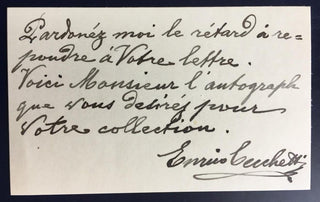 Pardonéz moi le rétard à re-
pondre à Votre lettre.
Voici Monsieur l'autograph
que vous desirés pour
Votre collection.
Enrico Cecchetti